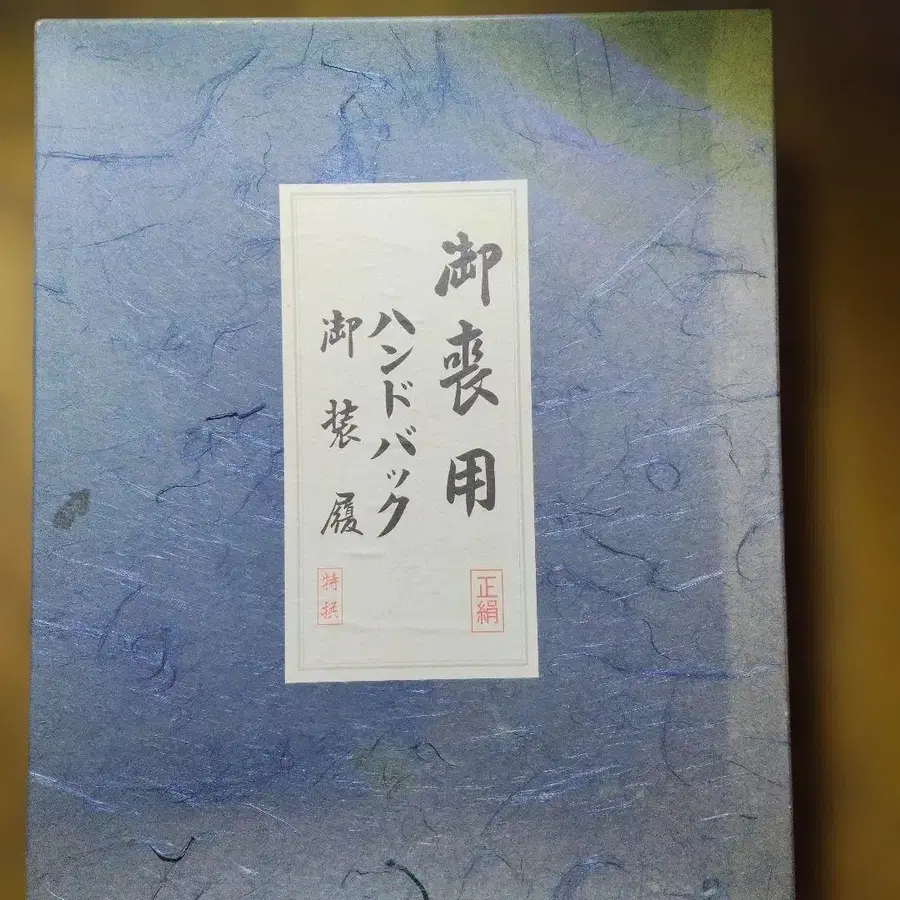 御喪用
ハンドバック
御装履
正絹
特撰